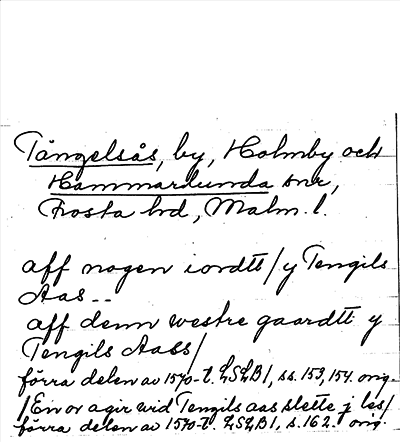 Tängelsås, by, Holmby och
Hammarlunda snr,
Frosta hd, Malm. l.
aff nogen iordtt / y Tengils
Aas --
aff denn westre gaardtt y
Tengils Aass /
förra delen av 1570-t. LSLB1, ss. 153, 154. orig.
/ En or agir wid Tengils aas slette j les /
förra delen av 1570-t. LSLB1, s. 162. orig.